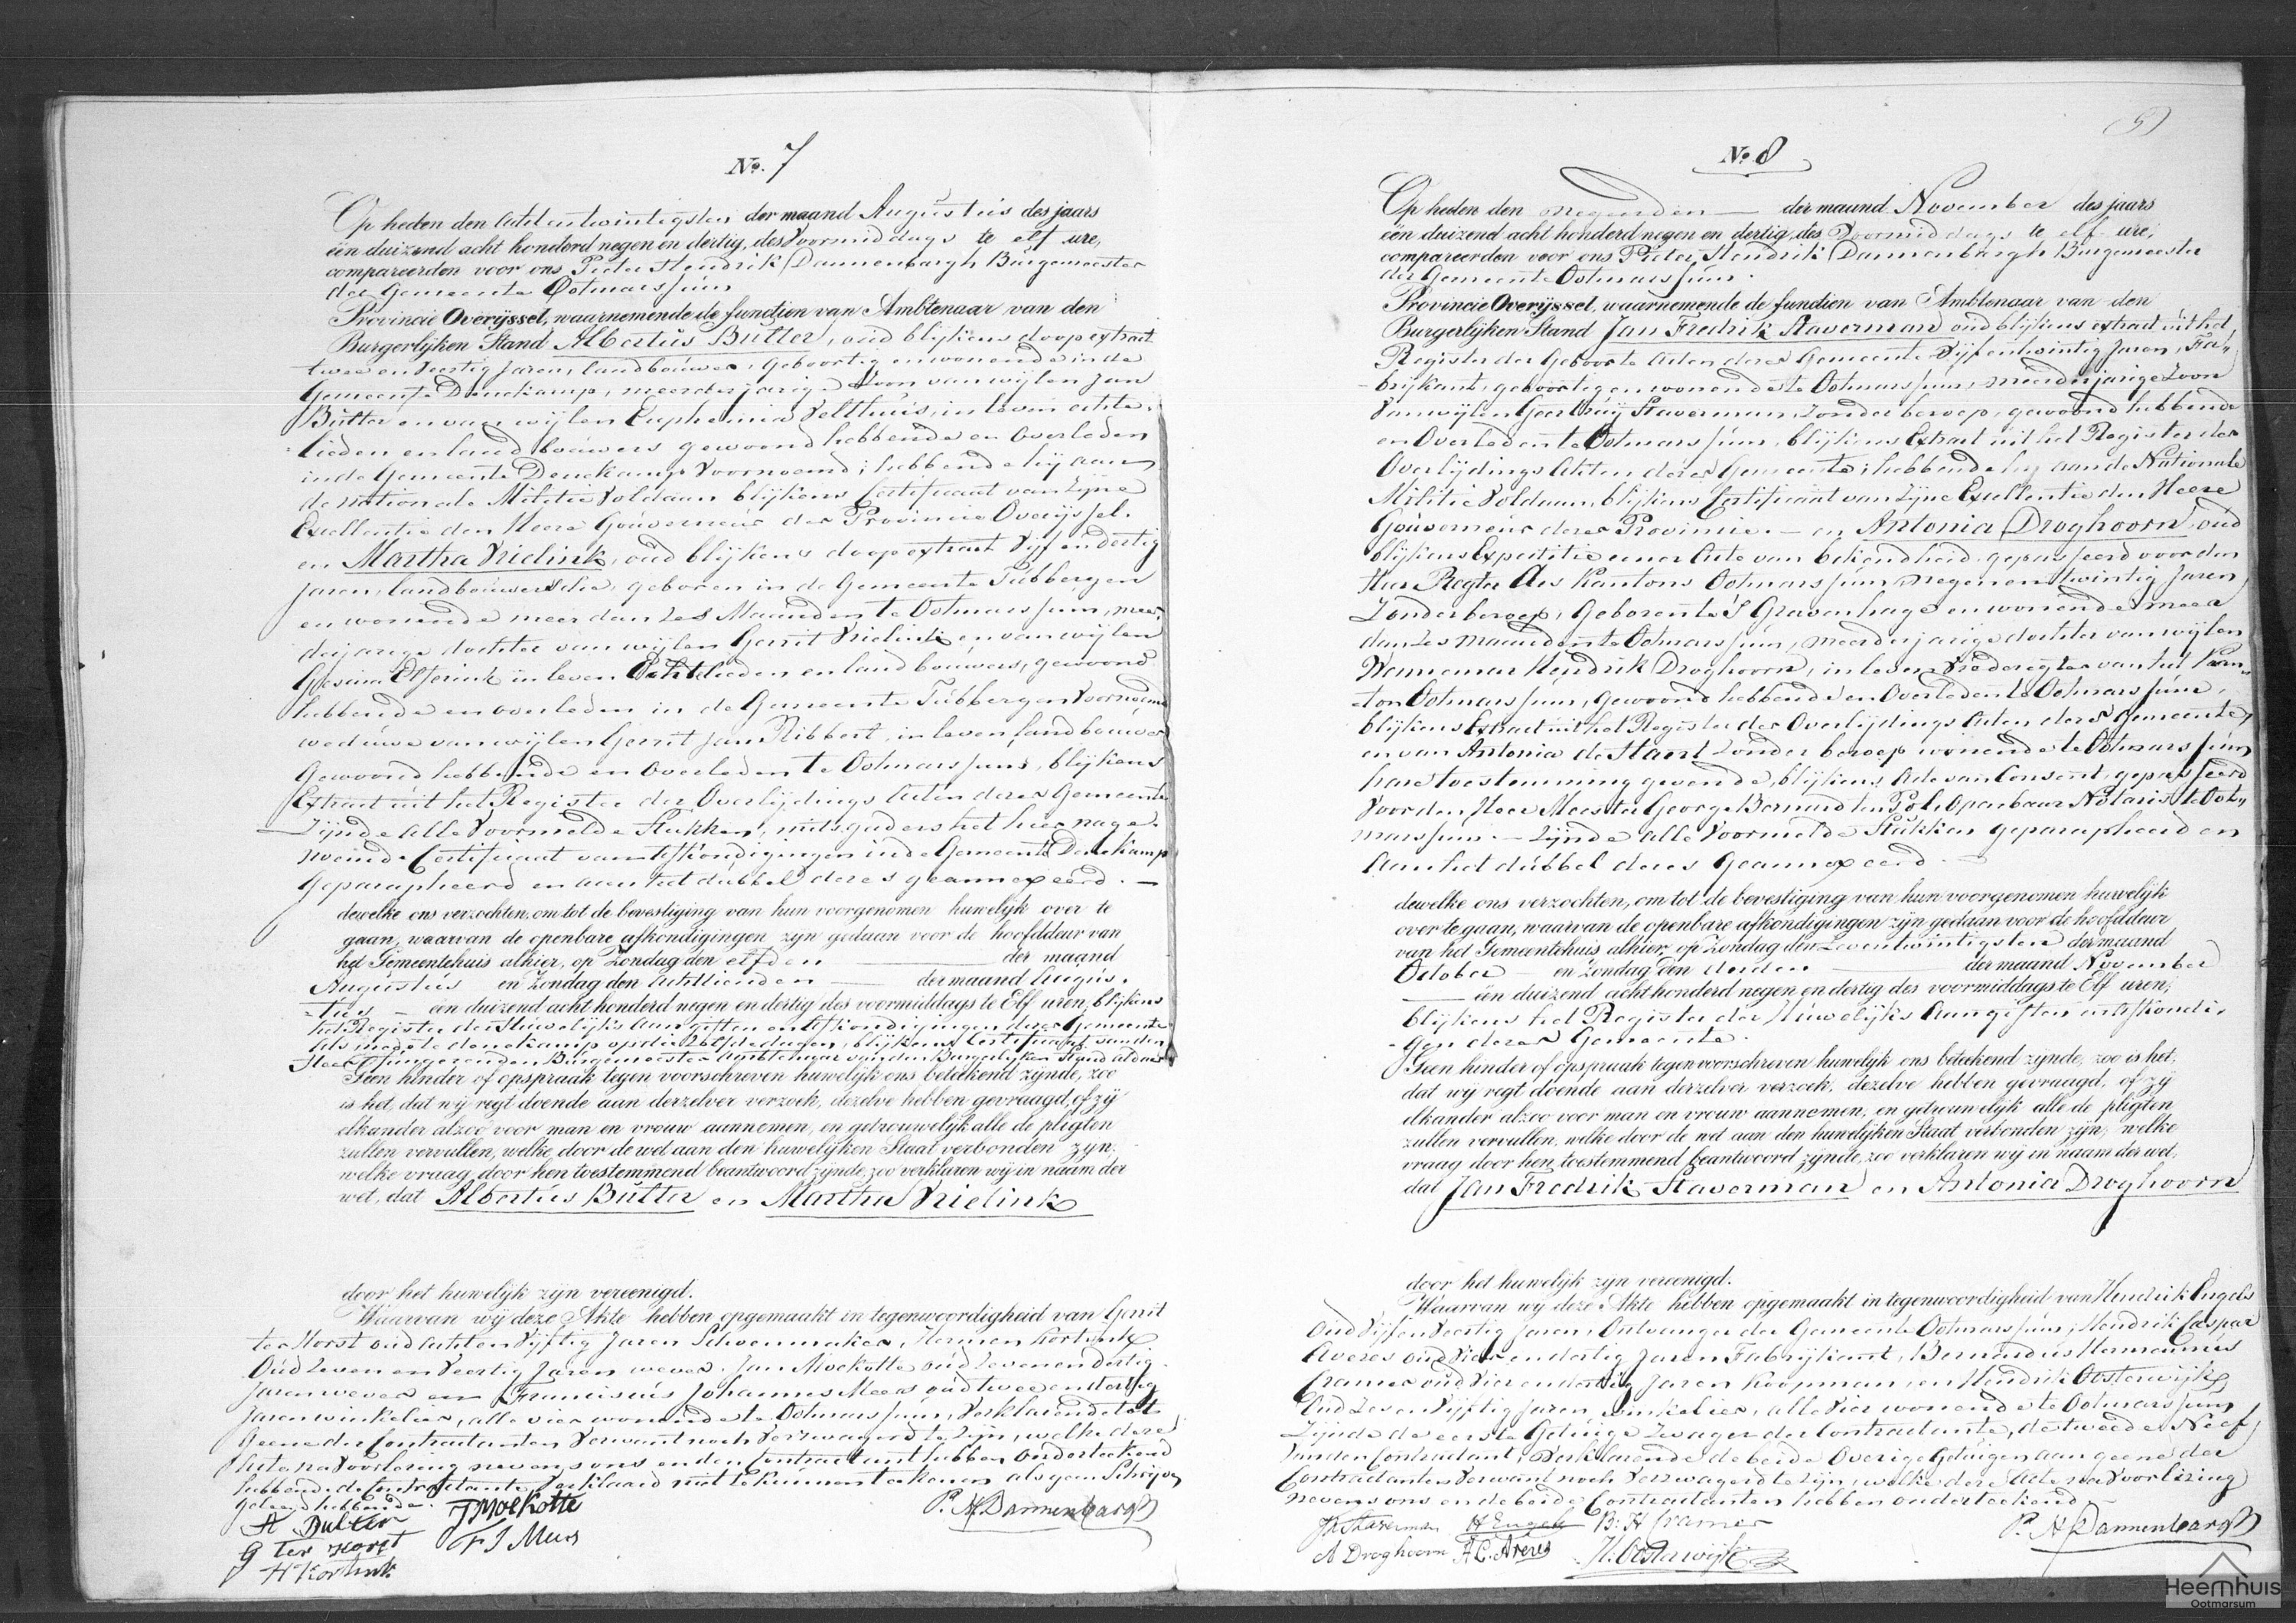 No. 7
Op heden den achtentwintigsten der maand Augustus des jaars
een duizend acht honderd negen en dertig, des Voormiddags te elf ure,
compareerden voor ons Pieter Hendrik Dannenbargh Burgemeester
der Gemeente Ootmarssum
Provincie Overijssel, waarnemende de functien van Ambtenaar van den
Burgerlijken Stand Albertus Bulter, oud blijkens doop extract
twee en veertig jaren, landbouwer, geboortig en wonende in de
Gemeente Denekamp, meerderjarige Zoon van wijlen Jan
Bulter en van wijlen Euphemia Velthuis, in leven echte-
lieden en landbouwers gewoond hebbende en overleden
in de Gemeente Denekamp Voornoemd; hebbende hij aan
de nationale Militie Voldaan blijkens Certificaat van Zijne
Excellentie den Heere Gouverneur der Provincie Overijssel.
en Martha Vrielink, oud blijkens doop extract Vijf en dertig
jaren, landbouwersche, geboren in de Gemeente Tubbergen
en wonende meer dan Zes Maanden te Ootmarssum, meer-
derjarige dochter van wijlen Gerrit Vrielink en van wijlen
Gesina Elferink in leven Echtelieden en landbouwers, gewoond
hebbende en overleden in de Gemeente Tubbergen Voornoemd
weduwe van wijlen Gerrit Jan Ribbert, in leven landbouwer
Gewoond hebbende en Overleden te Ootmarssum, blijkens
Extract uit het Register der Overlijdings Acten dezer Gemeente
Zijnde alle Voormelde Stukken, mitsgaders het hier nage-
noemde Certificaat van afkondigingen in de Gemeente Denekamp
Geparapheerd en aan het dubbel dezes geannexeerd. —
dewelke ons verzochten, om tot de bevestiging van hun voorgenomen huwelijk over te
gaan, waarvan de openbare afkondigingen zijn gedaan voor de hoofddeur van
het Gemeentehuis alhier, op Zondag den elfden — der maand
Augustus en Zondag den achttienden — der maand Augus-
tus — een duizend acht honderd negen en dertig des voormiddags te Elf uren, blijkens
het Register der Huwelijks aangiften en afkondigingen dezer Gemeente
als mede te Denekamp op die Zelfde dagen, blijkens Certificaat van den
Heer fungerenden Burgemeester Ambtenaar van den Burgerlijken Stand aldaar
Geen hinder of opspraak tegen voorschreven huwelijk ons beteekend zijnde, zoo
is het, dat wij regt doende aan derzelver verzoek, dezelve hebben gevraagd, of zij
elkander alzoo voor man en vrouw aannemen, en getrouwelijk alle de pligten
zullen vervullen, welke door de wet aan den huwelijken Staat verbonden zijn,
welke vraag door hen toestemmend beantwoord zijnde, zoo verklaren wij in naam der
wet, dat Albertus Bulter en Martha Vrielink
door het huwelijk zijn vereenigd.
Waarvan wij deze Akte hebben opgemaakt in tegenwoordigheid van Gerrit
ter Horst oud acht en Vijftig Jaren Schoenmaker, Hermen Kortink
Oud Zeven en Veertig Jaren wever. Jan Moekotte oud Zeven en dertig
Jaren wever en Franciscus Johannes Meers oud twee en dertig
Jaren winkelier, alle vier wonende te Ootmarssum, Verklarende tot
Geene der Contractanten Verwant noch Verzwagerd te Zijn, welke deze
Acte na Voorlezing nevens ons en den Contractant hebben onderteekend
hebbende de Contractante Verklaard niet te kunnen teekenen als geen Schrijven
geleerd hebbende.
A Bulter J Moekotte P. H Dannenbargh
G ter Horst F J Meers
H Kortink
(5)
No. 8
Op heden den negenden — der maand November des jaars
een duizend acht honderd negen en dertig, des Voormiddags te elf ure,
compareerden voor ons Pieter Hendrik Dannenbargh Burgemeester
der Gemeente Ootmarssum.
Provincie Overijssel, waarnemende de functien van Ambtenaar van den
Burgerlijken Stand Jan Fredrik Staverman oud blijkens extract uit het
Register der Geboorte Acten dezer Gemeente Vijfentwintig Jaren, Fa-
brijkant, geboortig en wonende te Ootmarssum, meerderjarige Zoon
Van wijlen Geertruij Staverman, Zonder beroep, gewoond hebbende
en Overleden te Ootmarssum, blijkens Extract uit het Register der
Overlijdings Akten dezer Gemeente; hebbende hij aan de Nationale
Militie Voldaan, blijkens Certificaat van Zijne Excellentie den Heere
Gouverneur dezer Provincie. — en Antonia Droghoorn oud
blijkens Expeditie eener Acte van bekendheid gepasseerd voor den
Heer Regter des Kantons Ootmarssum, negen en twintig Jaren,
Zonder beroep, Geboren te S Gravenhage en wonende meer
dan Zes maanden te Ootmarssum, meerderjarige dochter van wijlen
Wannemar Hendrik Droghoorn, in leven Vrederegter van het Kan-
ton Ootmarssum, gewoond hebbende en Overleden te Ootmarssum,
blijkens Extract uit het Register der Overlijdings Acten dezer Gemeente,
en van Antonia de Hant Zonder beroep wonende te Ootmarssum
hare toestemming gevende, blijkens Acte van Consent, gepasseerd
Voor den Heer Meester George Bernard ten Pol Openbaar Notaris te Oot-
marssum. — Zijnde alle Voormelde Stukken geparapheerd en
Aan het dubbel dezes Geannexeerd. —
dewelke ons verzochten, om tot de bevestiging van hun voorgenomen huwelijk
over te gaan, waarvan de openbare afkondigingen zijn gedaan voor de hoofddeur
van het Gemeentehuis alhier, op Zondag den Zeventwintigsten der maand
October — en Zondag den derden — der maand November
— een duizend acht honderd negen en dertig des voormiddags te Elf uren,
blijkens het Register der Huwelijks Aangiften en afkondi-
gen dezer Gemeente.
Geen hinder of opspraak tegen voorschreven huwelijk ons beteekend zijnde, zoo is het,
dat wij regt doende aan derzelver verzoek, dezelve hebben gevraagd, of zij
elkander alzoo voor man en vrouw aannemen, en getrouwelijk alle de pligten
zullen vervullen, welke door de wet aan den huwelijken Staat verbonden zijn, welke
vraag door hen toestemmend beantwoord zijnde, zoo verklaren wij in naam der wet,
dat Jan Fredrik Staverman en Antonia Droghoorn
door het huwelijk zijn vereenigd.
Waarvan wij deze Akte hebben opgemaakt in tegenwoordigheid van Hendrik Engels
Oud Vijf en Veertig Jaren, Ontvanger der Gemeente Ootmarssum, Hendrik Caspar
Averes oud Vier en dertig Jaren Fabrijkant, Bernardus Hermannus
Cramer oud Vier en dertig Jaren Koopman, en Hendrik Oosterwijk
Oud Zes en Vijftig Jaren, winkelier, alle Vier wonende te Ootmarssum
Zijnde de eerste Getuige Zwager der Contractante, de tweede Neef
Van den Contractant, Verklarende de beide Overige Getuigen aan geene der
Contractanten Verwant noch Verzwagerd te zijn, welke deze Acte na Voorlezing
nevens ons en de beide Contractanten hebben onderteekend.
JF Staverman H Engels B: H Cramer P. H Dannenbargh
A Droghoorn H. C. Averes H: Oosterwijk
Heemhuis
Ootmarsum